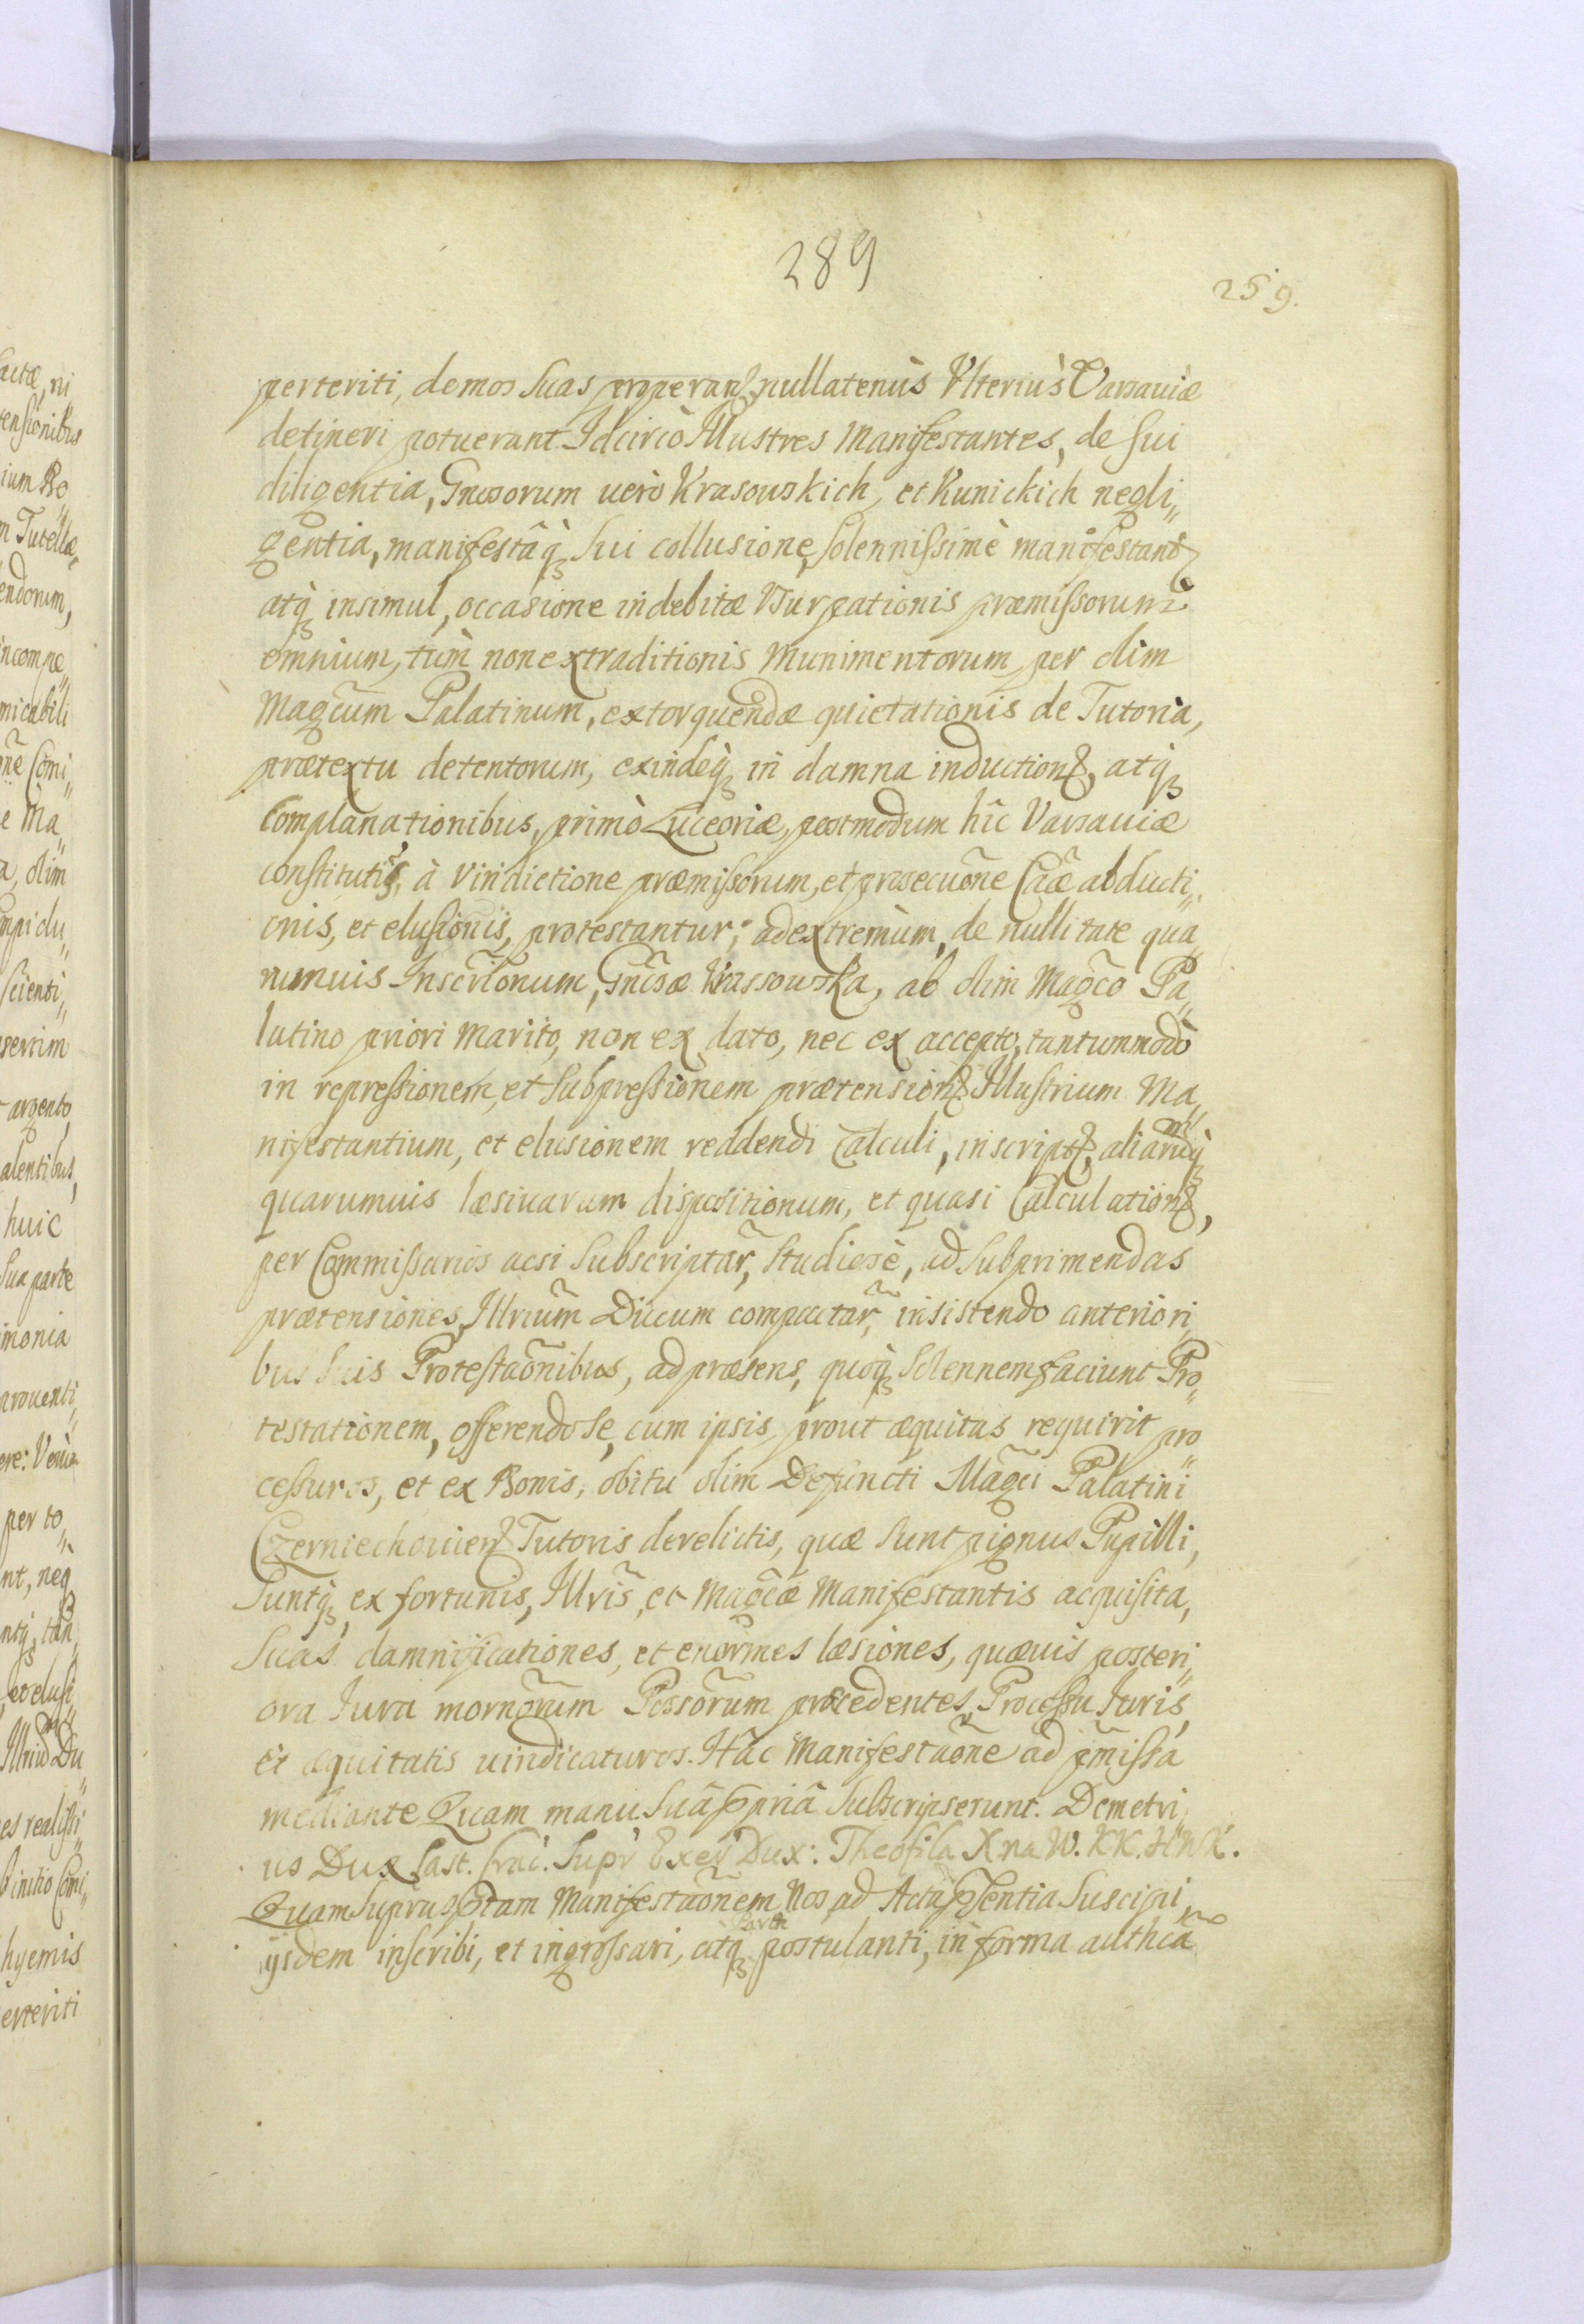 289
259.
perteriti, domos suas properantes, nullatenùs Ulteriùs Varsaviæ
detineri potuerant. Idcircò Illustres Manifestantes, de sui
diligentia, Gnosorum verò Krasowskich, et Kunickich negli„
gentia, manifestâq́; sui collusione, solennissimè manifestant
atq́; insimul, occasione indebitæ Usurpationis præmissorum
omnium, tùm non extraditionis Munimentorum, per olim
Magcum Palatinum, extorquendæ quietationis de Tutoria,
prætextu detentorum, exindeq́; in damna inductionis, atq́;
complanationibus, primò Luceoriæ, postmodum hîc Varsaviæ
constitutis, à vindictione præmissorum, et prosecuõne Cãæ abducti„
onis, et elusionis, protestantur; ad extremùm, de nullitate qua„
rumvis Inscriõnum, Gnosæ Krassowska, ab olim Magco Pa„
latino priori marito, non ex dato, nec ex accepto, tantummodò
in repressionem, et subpressionem prætensionis Illustrium Ma„
nifestantium, et elusionem reddendi Calculi, inscriptis, aliarumq́;
quarumvis læsivarum dispositionum, et quasi Calculationis,
per Commissarios acsi subscriptar̃, studiosè, ad subprimendas
prætensiones, Illrium Ducum compactar̃, insistendo anteriori„
bus suis Protestaõnibus, ad præsens, quoq́; solennem faciunt Pro„
testationem, offerendo se, cum ipsis, prout æquitas requirit pro„
cessuros, et ex Bonis, obitu olim Defuncti Magci Palatini
Czerniechoviens Tutoris derelictis, quæ sunt pignus Pupilli,
suntq́; ex fortunis, Illris, et Magcæ Manifestantis acquisita,
suas damnificationes, et enormes læsiones, quævis posteri„
ora Jura mornorum Possorum præcedentes, Processu Juris,
et æquitatis vindicaturos. Hâc Manifestaõne ad pmissa
mediante Quam manu suâ ppriâ subscripserunt. Demetri„
us Dux Cast. Crac. Supr Exer Dux: Theofila Xna W. KK. HWK.
Quam suprascptam Manifestaõnem Nos, ad Acta psentia suscipi
ijsdem inscribi, et ingrossari, atq́; Parti postulanti, in forma authca